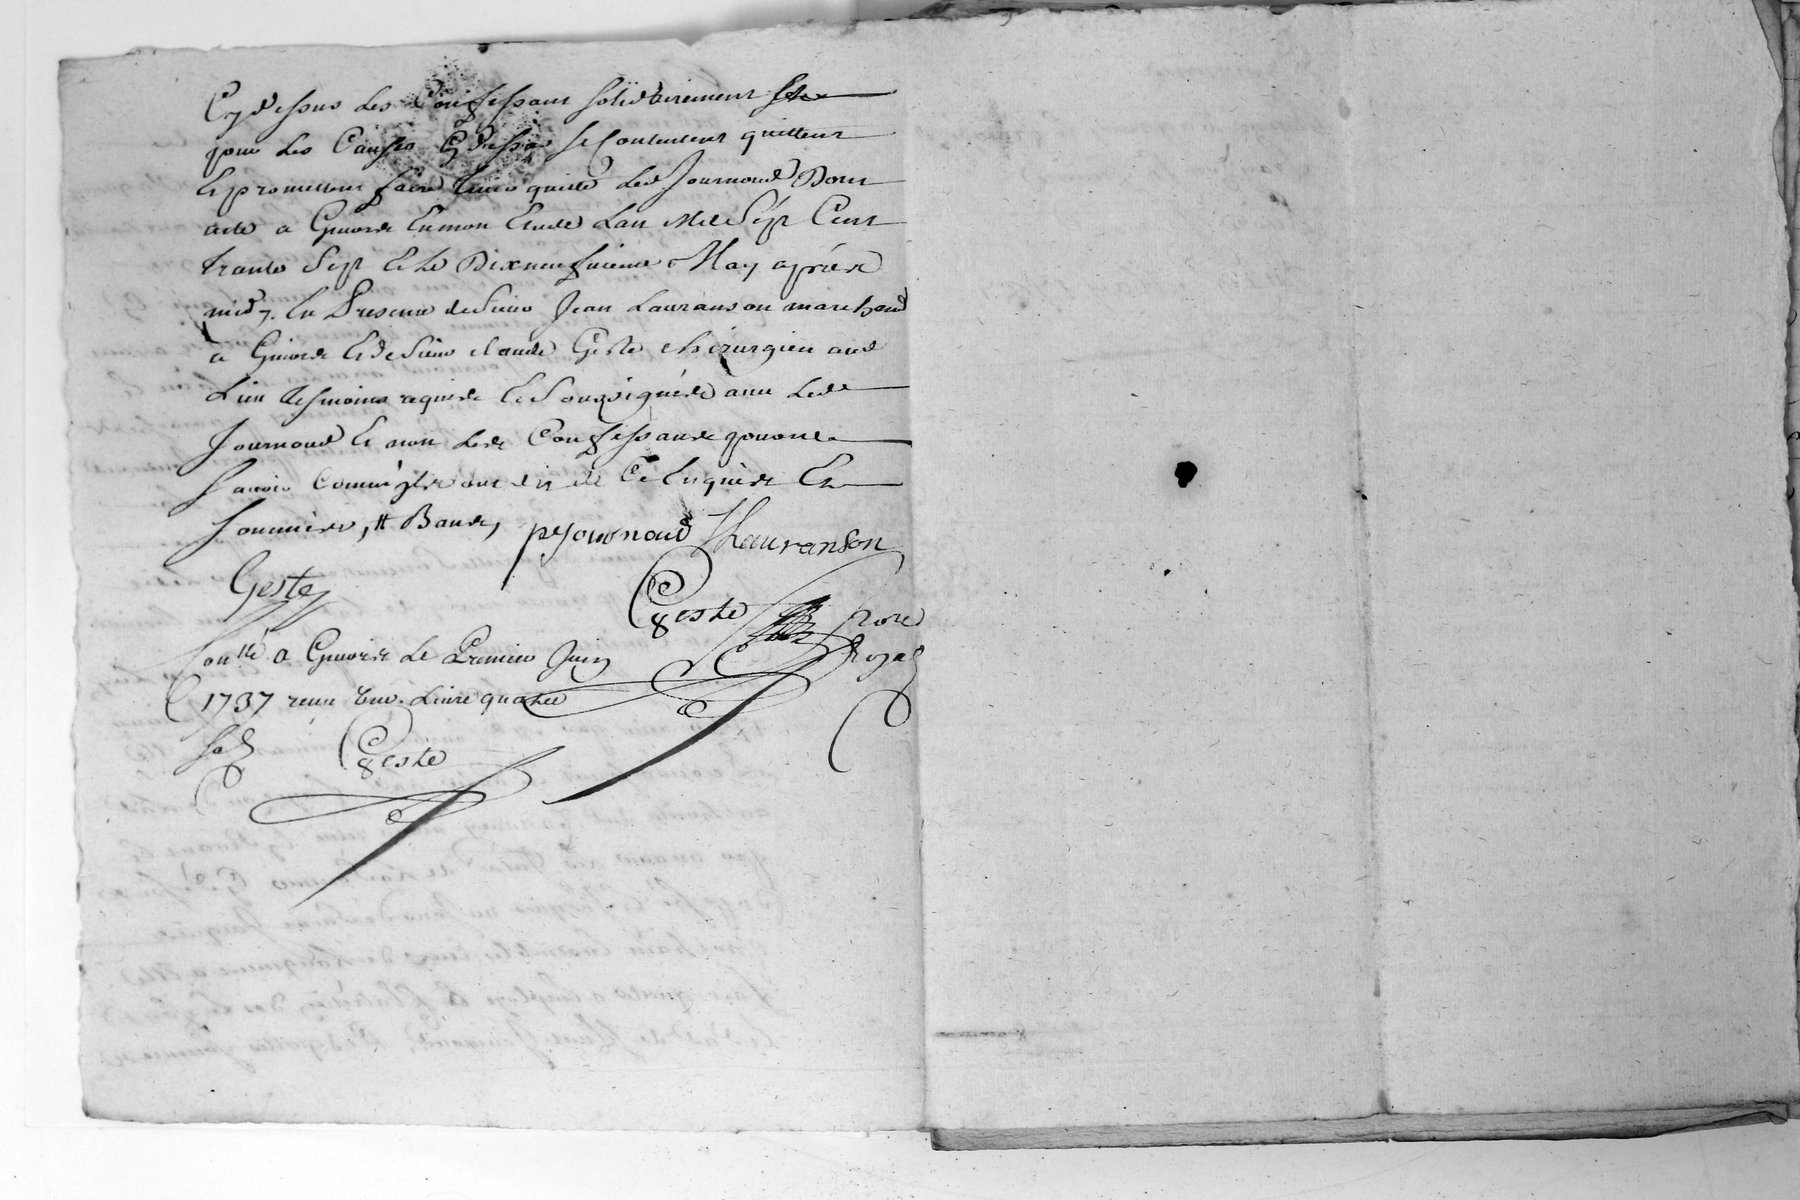 Cy dessus les Confessants solidairement
pour les Causes Cy dessus se Contentent quittent
Et promettent faire tenir quitte led Journoud Dont
acte a Givors En mon Etude Lan Mil Sept Cent
trante Sept Et le Dixneufvieme May après
midy. En Presence de Sieur Jean Lauranson marchand
a Givors Et de Sieur claude Geste chirurgien aud
Lieu tesmoins requis Et Soussignés avec led
Journoud Et non lesd Confessants pour ne
scavoir Comme ils ont dit de Ce Enquis Et
sommés, H Bands,
pyournoud JLauranson
Geste
Geste
nore
Royal
Conllé a Givors Le Premier Juin
1737 receu une Livre quatre
sols
Geste